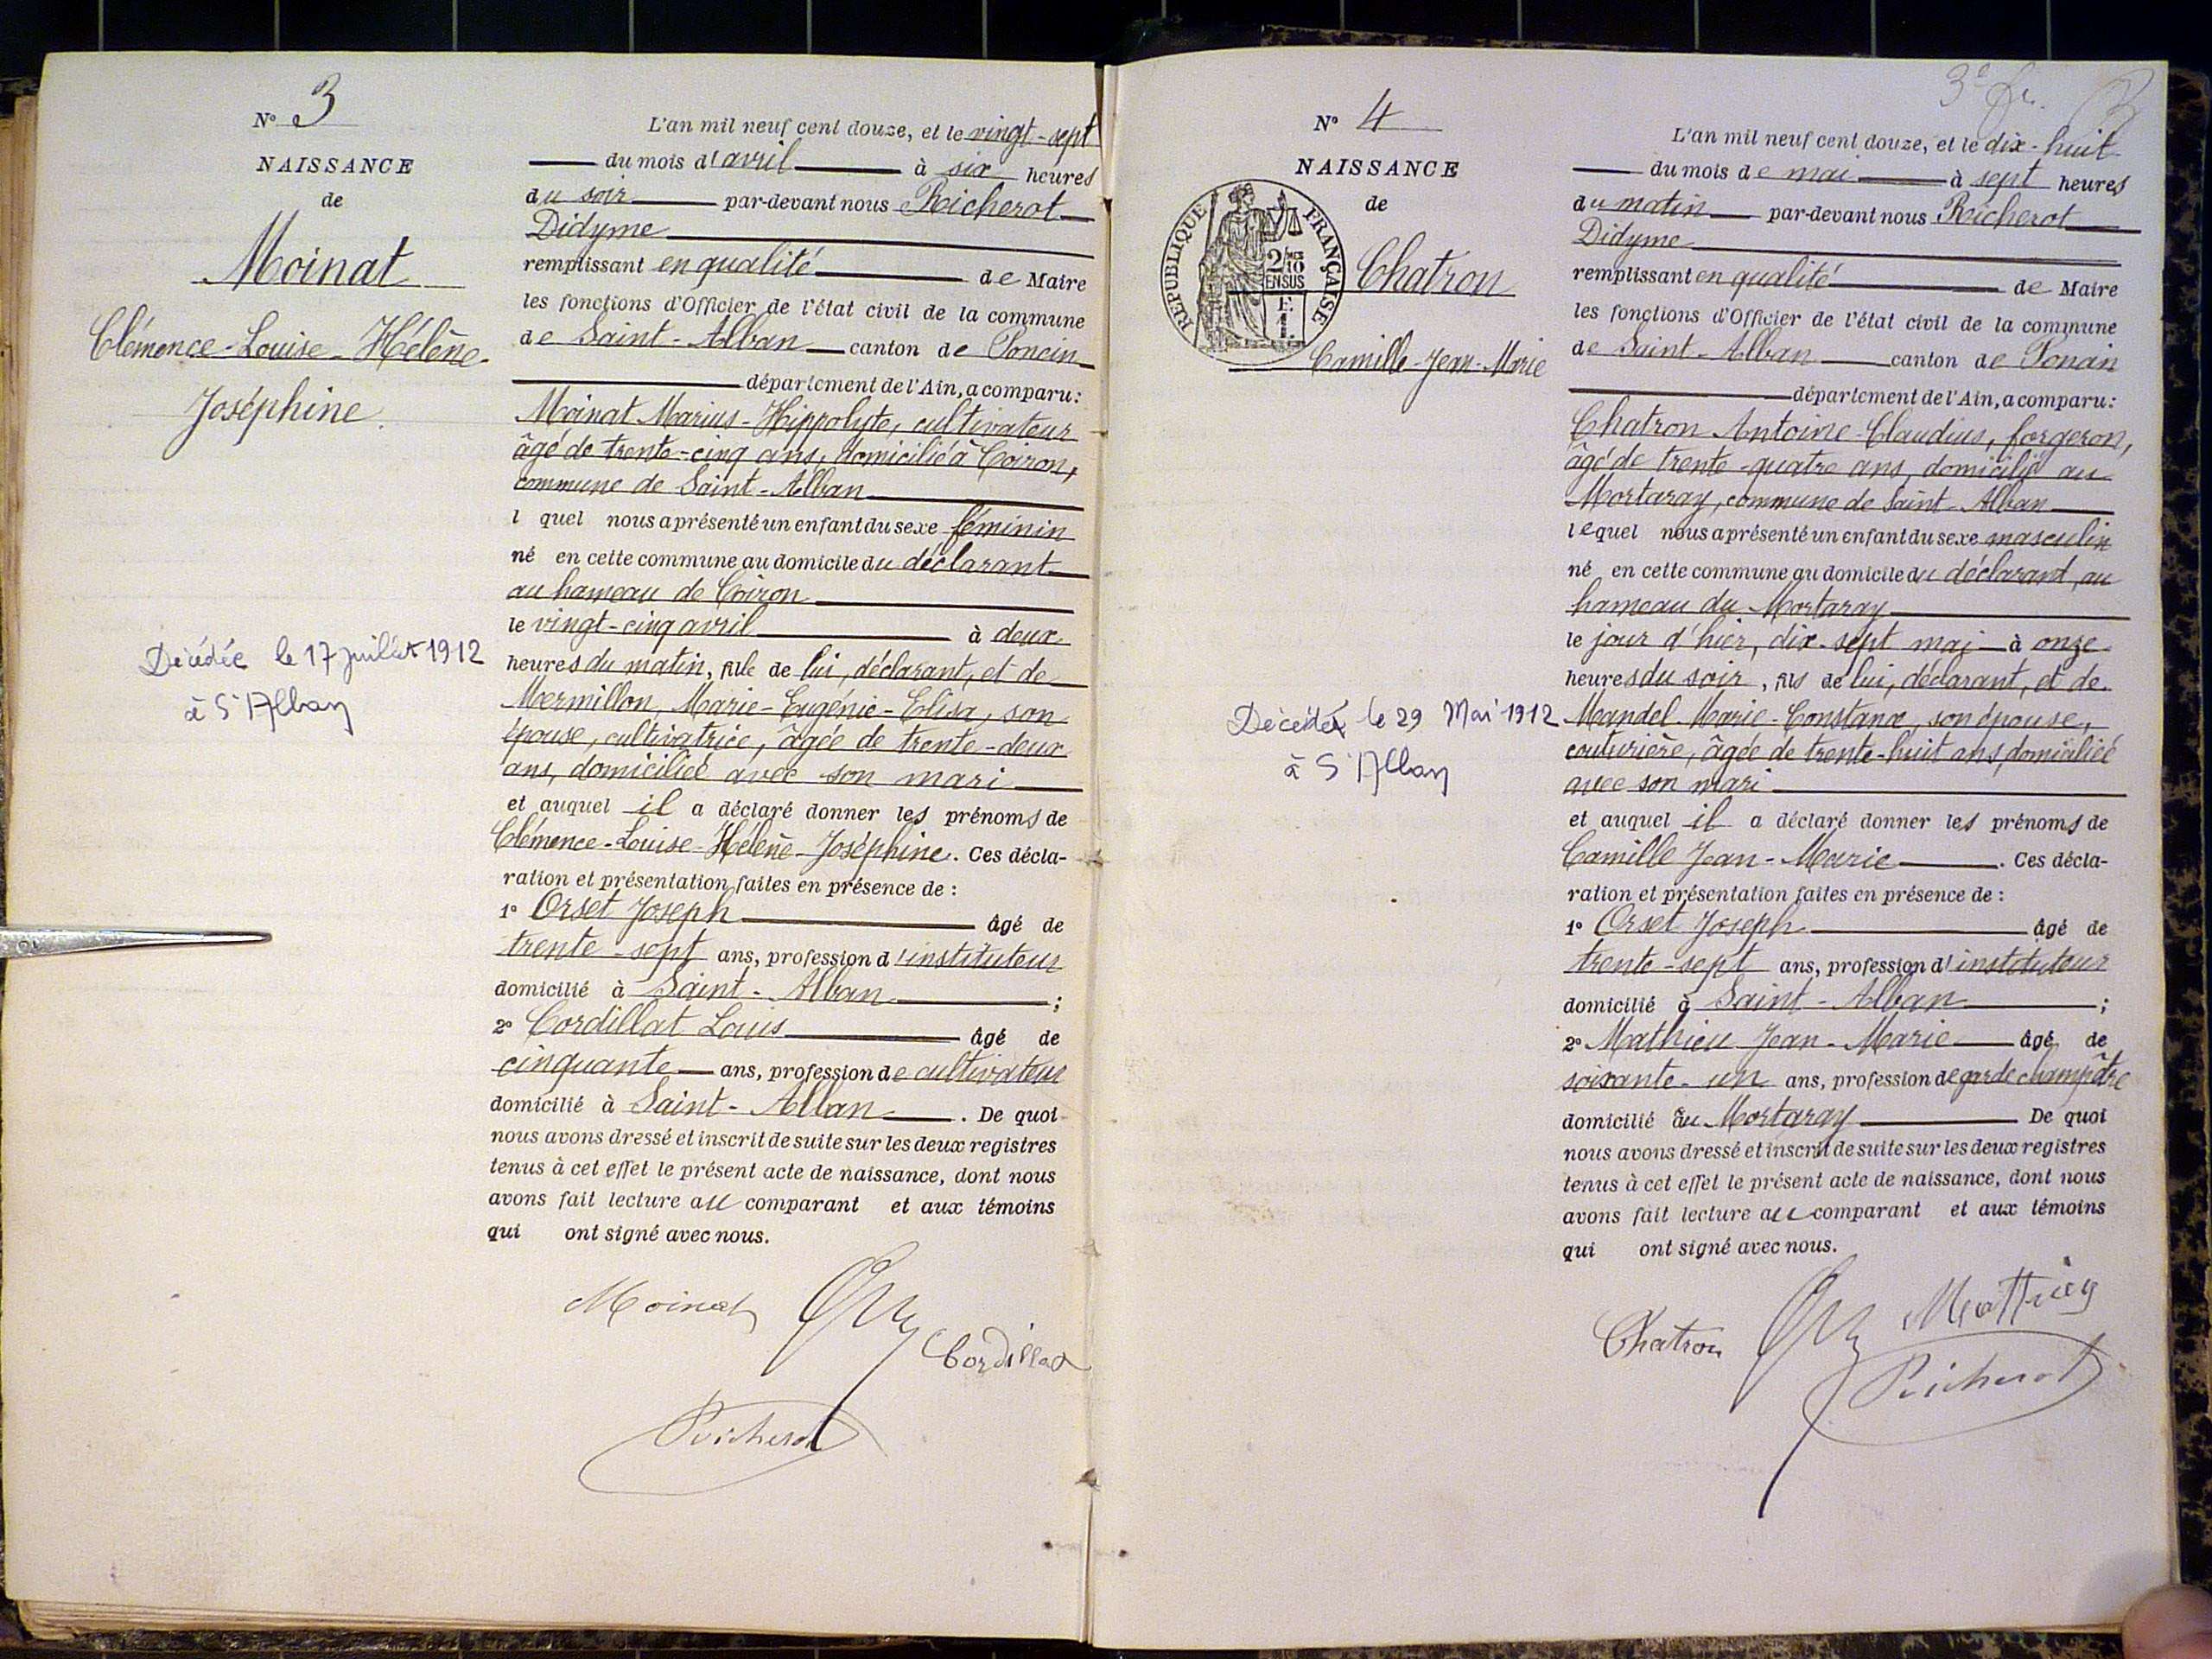 N° 3
NAISSANCE
de
Moinat
Clémence-Louise-Hélène-
Joséphine.
Décédée le 17 juillet 1912
à St Alban
L'an mil neuf cent douze, et le vingt-sept
du mois d'avril à six heures
du soir par-devant nous Richerot
Didyme
remplissant en qualité de Maire
les fonctions d'Officier de l'état civil de la commune
de Saint-Alban canton de Poncin
département de l'Ain, a comparu:
Moinat Marius-Hippolyte, cultivateur
âgé de trente-cinq ans, domicilié à Coiron,
commune de Saint-Alban
l quel nous a présenté un enfant du sexe féminin
né en cette commune au domicile du déclarant
au hameau de Coiron
le vingt-cinq avril à deux
heures du matin, fille de lui, déclarant, et de
Mermillon, Marie-Eugénie-Elisa, son
épouse, cultivatrice, âgée de trente-deux
ans, domiciliée avec son mari
et auquel il a déclaré donner les prénoms de
Clémence-Louise-Hélène-Joséphine. Ces décla-
ration et présentation faites en présence de :
1° Orset Joseph âgé de
trente-sept ans, profession d'instituteur
domicilié à Saint-Alban ;
2° Cordillat Louis âgé de
cinquante ans, profession de cultivateur
domicilié à Saint-Alban. De quoi
nous avons dressé et inscrit de suite sur les deux registres
tenus à cet effet le présent acte de naissance, dont nous
avons fait lecture au comparant et aux témoins
qui ont signé avec nous.
Moinat
Cordillat
Richerot
3e fr.
N° 4
NAISSANCE
de
RÉPUBLIQUE FRANÇAISE
2/10
EN SUS
E.
1.
Chatron
Camille-Jean-Marie
Décédé le 29 Mai 1912
à St Alban
L'an mil neuf cent douze, et le dix-huit
du mois de mai à sept heures
du matin par-devant nous Richerot
Didyme
remplissant en qualité de Maire
les fonctions d'Officier de l'état civil de la commune
de Saint-Alban canton de Poncin
département de l'Ain, a comparu:
Chatron Antoine-Claudius, forgeron,
âgé de trente-quatre ans, domicilié au
Mortaray, commune de Saint-Alban
lequel nous a présenté un enfant du sexe masculin
né en cette commune au domicile du déclarant, au
hameau du Mortaray
le jour d'hier, dix-sept mai à onze
heures du soir, fils de lui, déclarant, et de
Mandel Marie-Constance, son épouse,
couturière, âgée de trente-huit ans, domiciliée
avec son mari
et auquel il a déclaré donner les prénoms de
Camille Jean-Marie. Ces décla-
ration et présentation faites en présence de :
1° Orset Joseph âgé de
trente-sept ans, profession d'instituteur
domicilié à Saint-Alban ;
2° Mathieu Jean-Marie âgé de
soixante-un ans, profession de garde champêtre
domicilié au Mortaray De quoi
nous avons dressé et inscrit de suite sur les deux registres
tenus à cet effet le présent acte de naissance, dont nous
avons fait lecture au comparant et aux témoins
qui ont signé avec nous.
Chatron
Matthieu
Richerot